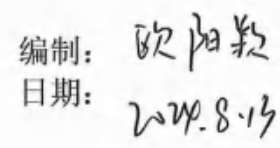 编制：欧阳颖
日期：2024.8.13